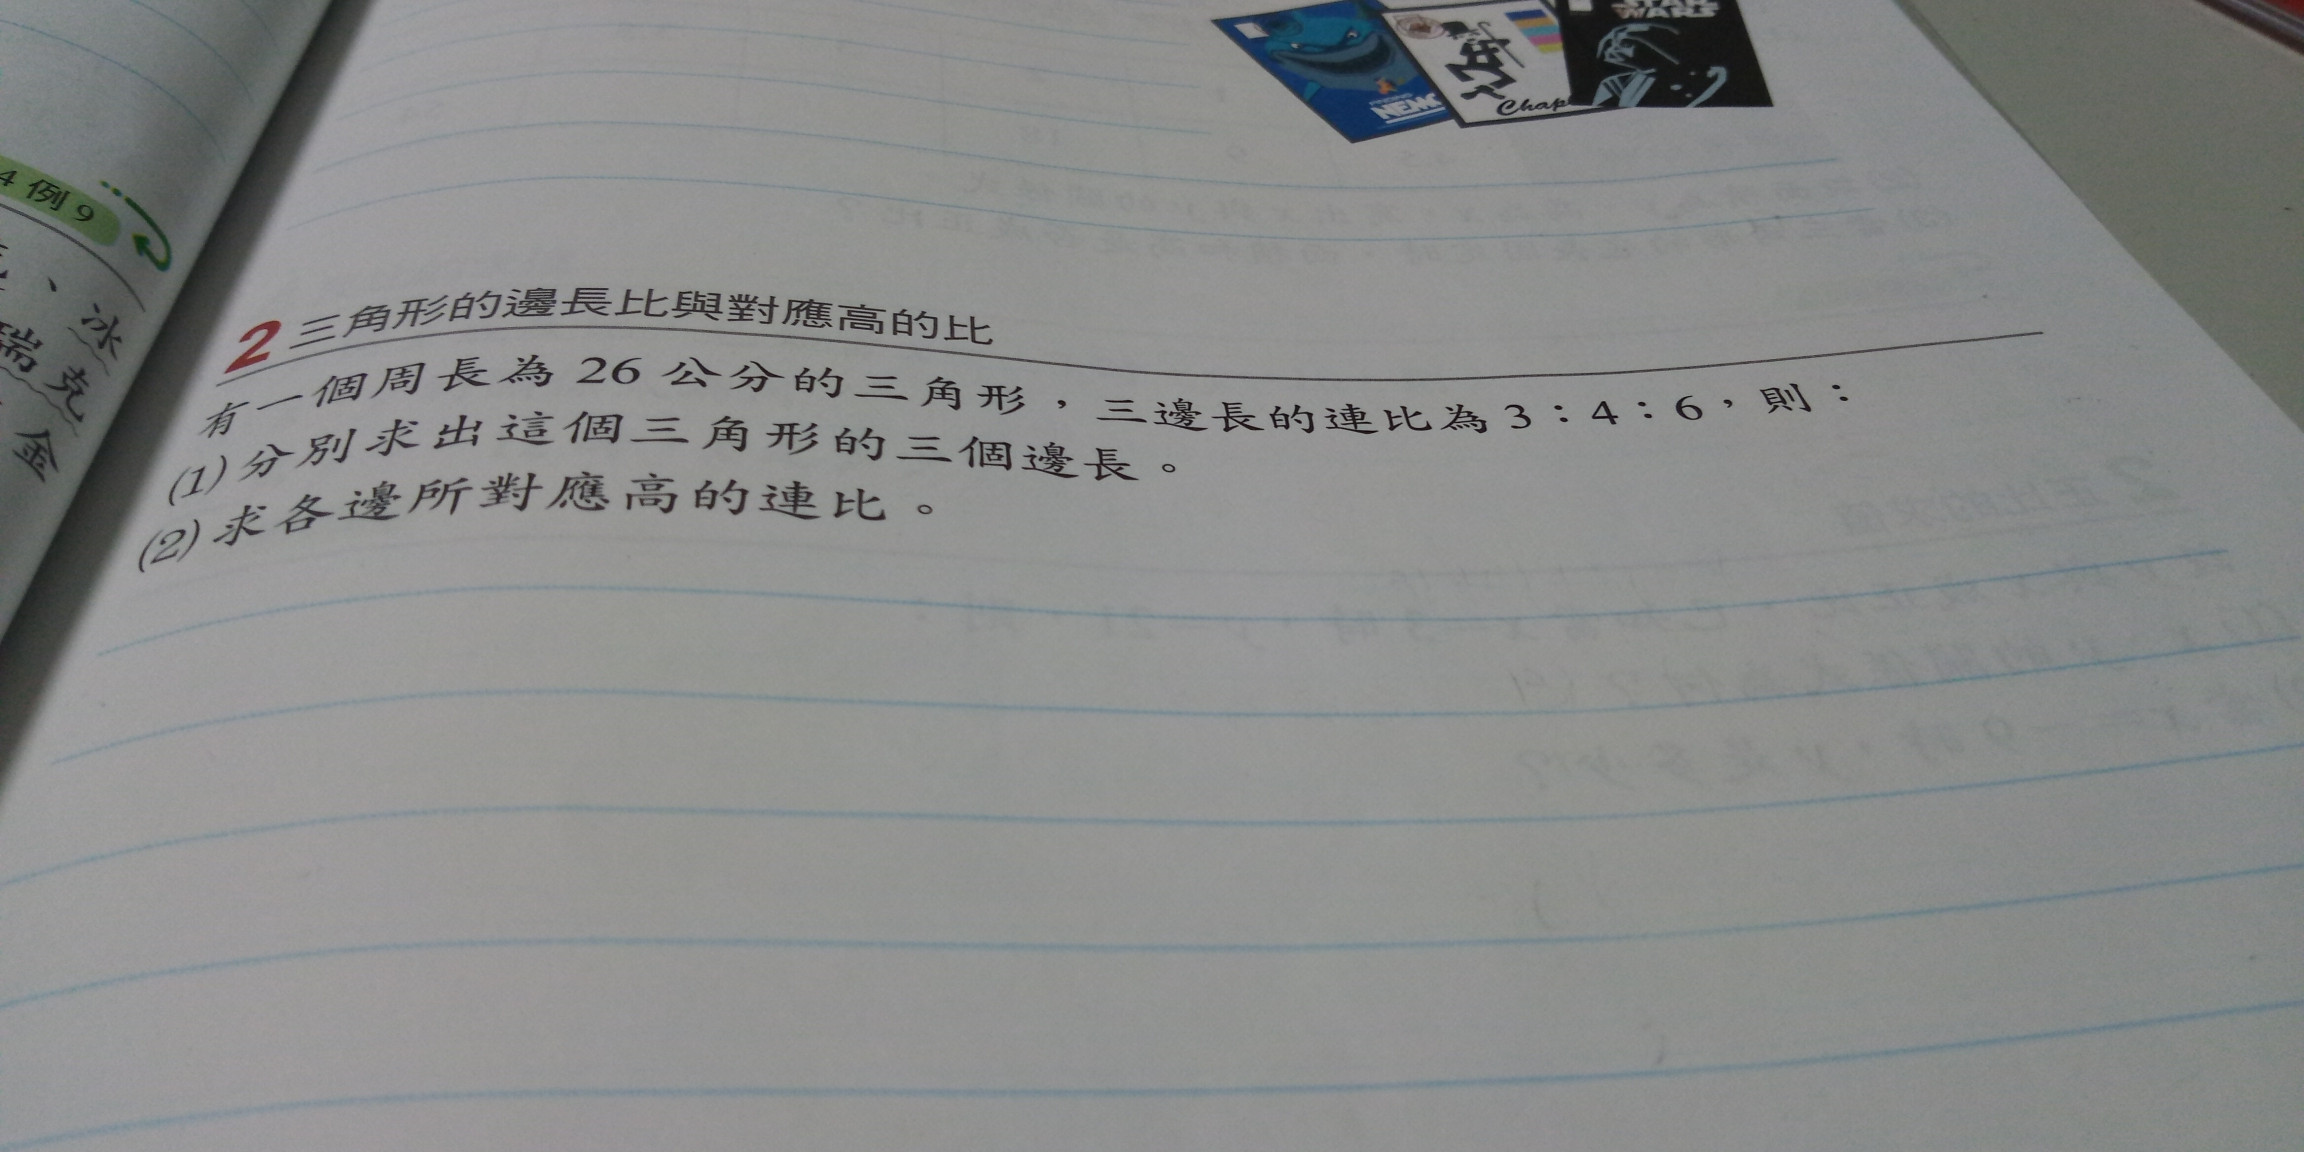 NEMO
Chap
STAR
WARS
4 例 9
、冰
瑞克
金
2 三角形的邊長比與對應高的比
有一個周長為 26 公分的三角形，三邊長的連比為 3：4：6，則：
(1) 分別求出這個三角形的三個邊長。
(2) 求各邊所對應高的連比。